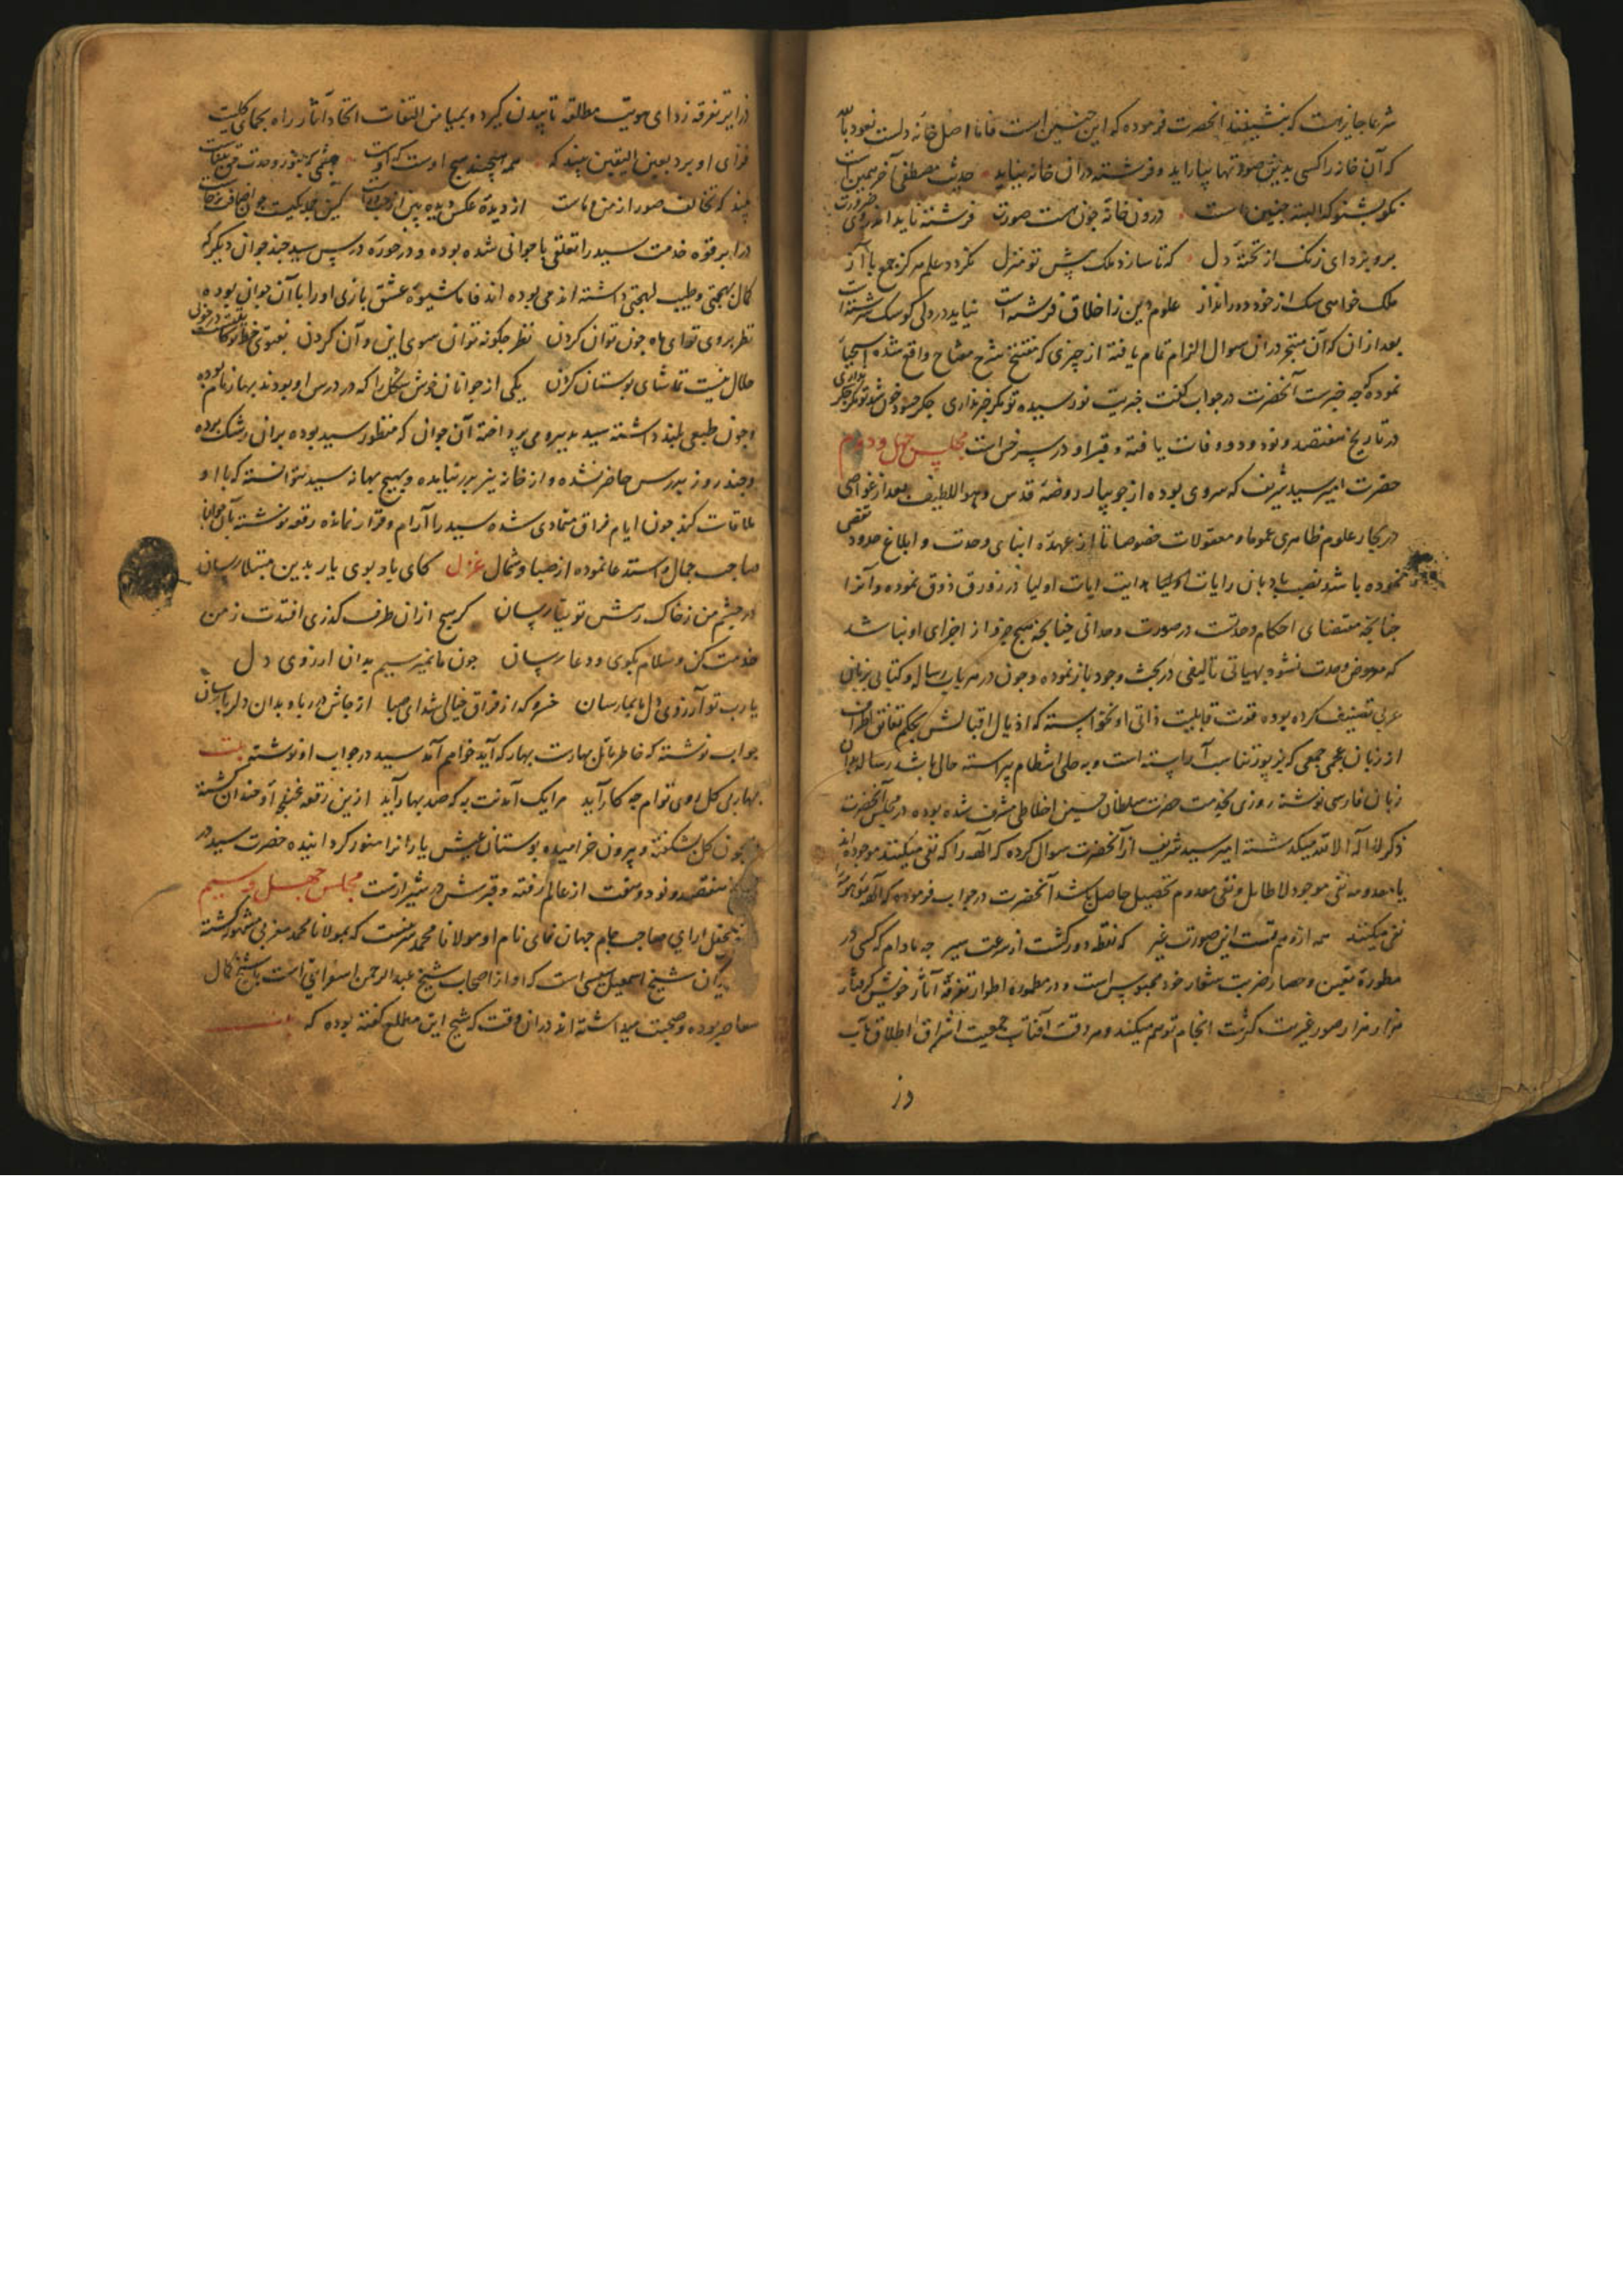 شرعا جایز است که بنشینند آنحضرت فرموده که این چنین است فاما اصل خانه دلست نعوذ بالله
که آن خانه را کسی بدین صورتها بیاراید و فرشته در آن خانه بیاید حدیث مصطفی آخر همین است
نکو بشنو که البته چنین است درون خانه چون هست صورت فرشته ناید اندر وی ضرورت
برو بزدای زنک از تخته دل که تا سازد ملک پیش تو منزل نکردد علم هرکز جمع با آز
ملک خواهی سک از خود دور انداز علوم دین ز اخلاق فرشته است نیاید در دلی کو سک سرشت است
بعد از آن که آن متبحر در آن سوال الزام تمام یافته از چیزی که واقع شده
نموده که چه خبرست آنحضرت در جواب کفت خبریت نو رسیده تو مکر خبر نداری جکر حسود خون شد تو مکر جکر نداری
در تاریخ هفتصد و نود و دو وفات یافته و قبر او در سرخاب است مجلس چهل و دوم
حضرت امیر سید شریف که سروی بوده از جویبار روضه قدس وهو اللطیف بعد از غواصی
در بحار علوم ظاهری عموما و معقولات خصوصا تا از عهده انبای وحدت و ابلاغ حدود تقصی
نموده باشد نصب بادبان رایات هدایت ایات اولیا در زورق ذوق نموده و آنرا
چنانچه مقتضای احکام وحدتست در صورت وحدانی چنانچه هیچ جزو از اجزای او نباشد
که معروض وحدت نشود بهیاتی تالیفی در بحث وجود باز نموده و چون در هر باب رساله و کتابی بزبان
عربی تصنیف کرده بوده قوت قابلیت ذاتی او نخواسته که اذیال اقبالش بحکم
از زبان عجمی جمعی که بزیور تناسب آراسته است و به حلی انتظام پیراسته خالی باشد رساله بدان
زبان فارسی نوشته روزی بخدمت حضرت سلطان حسین اخلاطی مشرف شده بوده در مجلس آنحضرت
ذکر لا اله الا الله میکذشته امیر سید شریف از آنحضرت سوال کرده که الهه را که نفی میکنند موجوده اند
یا معدومه نفی موجود لا طایل و نفی معدوم تحصیل حاصل باشد آنحضرت در جواب فرموده که الهه
نفی میکنند همه از وهم تست این صورت غیر که نقطه دور کشت از سرعت سیر چه مادام که کسی در
مطموره تعین و حصار ضربت شعار خود محبوس است و در مطموره اطوار تفرقه آثار خویش کرفتار
هزار هزار صور غیریت کثرت انجام توهم میکند و هر وقت آفتاب جمعیت اشراق اطلاق تاب
در
در ایر تفرقه زدای هویت مطلقه تابیدن کیرد و بمیامن التفات اتحاد آثار راه بجمای کلیت
فزای او برد بعین الیقین بیند که همه هیچند هیچ اوست که اوست چشمی که بنور وحدت
بیند که تخالف صور از من و ماست از دیده عکس دیده بین
در ابرقوه خدمت سید را تعلقی با جوانی شده بوده و در حوزه درس سید چند جوان دیکر که
کمال بهجتی و طیب لهجتی داشته اند می بوده اند فاما شیوه عشق بازی او را با آن جوان بوده
نظر بروی تو ای ماه چون توان کردن نظر چکونه توان سوی این و آن کردن بفتوی خط تو
حلال نیست تماشای بوستان کردن یکی از جوانان خوش شکل را که در درس او بودند بهار نام بوده
و چون طبعی بلند داشته سید بدیهه می پرداخته آن جوان که منظور سید بوده بر آن رشک برده
و چند روز بدرس حاضر نشده و از خانه نیز بدر نیامده و بهیچ بهانه سید نتوانسته که با او
ملاقات کند چون ایام فراق متمادی شده سید را آرام و قرار نمانده رقعه نوشته بآن جوان
صاحب جمال و استدعا نموده از صبا و شمال غزل کای باد بوی یار بدین مبتلا رسان
در چشم من ز خاک رهش توتیا رسان کر هیچ از آن طرف کذری افتدت ز من
خدمت کن و سلام بکوی و دعا رسان چون ما نمیرسیم بدان ارزوی دل
یا رب تو آرزوی دل ما بما رسان خسرو که از فراق خیالی شد ای صبا از جاش در رباه بدان دلربا رسان
جواب نوشته که خاطر مایل بهارست بهار که آید خواهم آمد سید در جواب او نوشته بیت
بهار بی کل روی توام چه کار آید مرا یک آمدنت به که صد بهار آید ازین رقعه غنچه او خندان کشته
چون کل بشکفته و بیرون خرامیده بوستان عیش یارانرا منور کردانیده حضرت سید در
هفتصد و نود و هفت از عالم رفته و قبرش در شیرازست مجلس چهل و سیم
محفل ارای صاحب جام جهان نمای نام او مولانا محمد شیرینست که بمولانا محمد مغربی مشهور کشته
شیخ اسمعیل سیسی است که او از اصحاب شیخ عبدالرحمن اسفراینی است با شیخ کمال
معاصر بوده و صحبت میداشته اند در آن وقت که شیخ این مطلع کفته بوده که